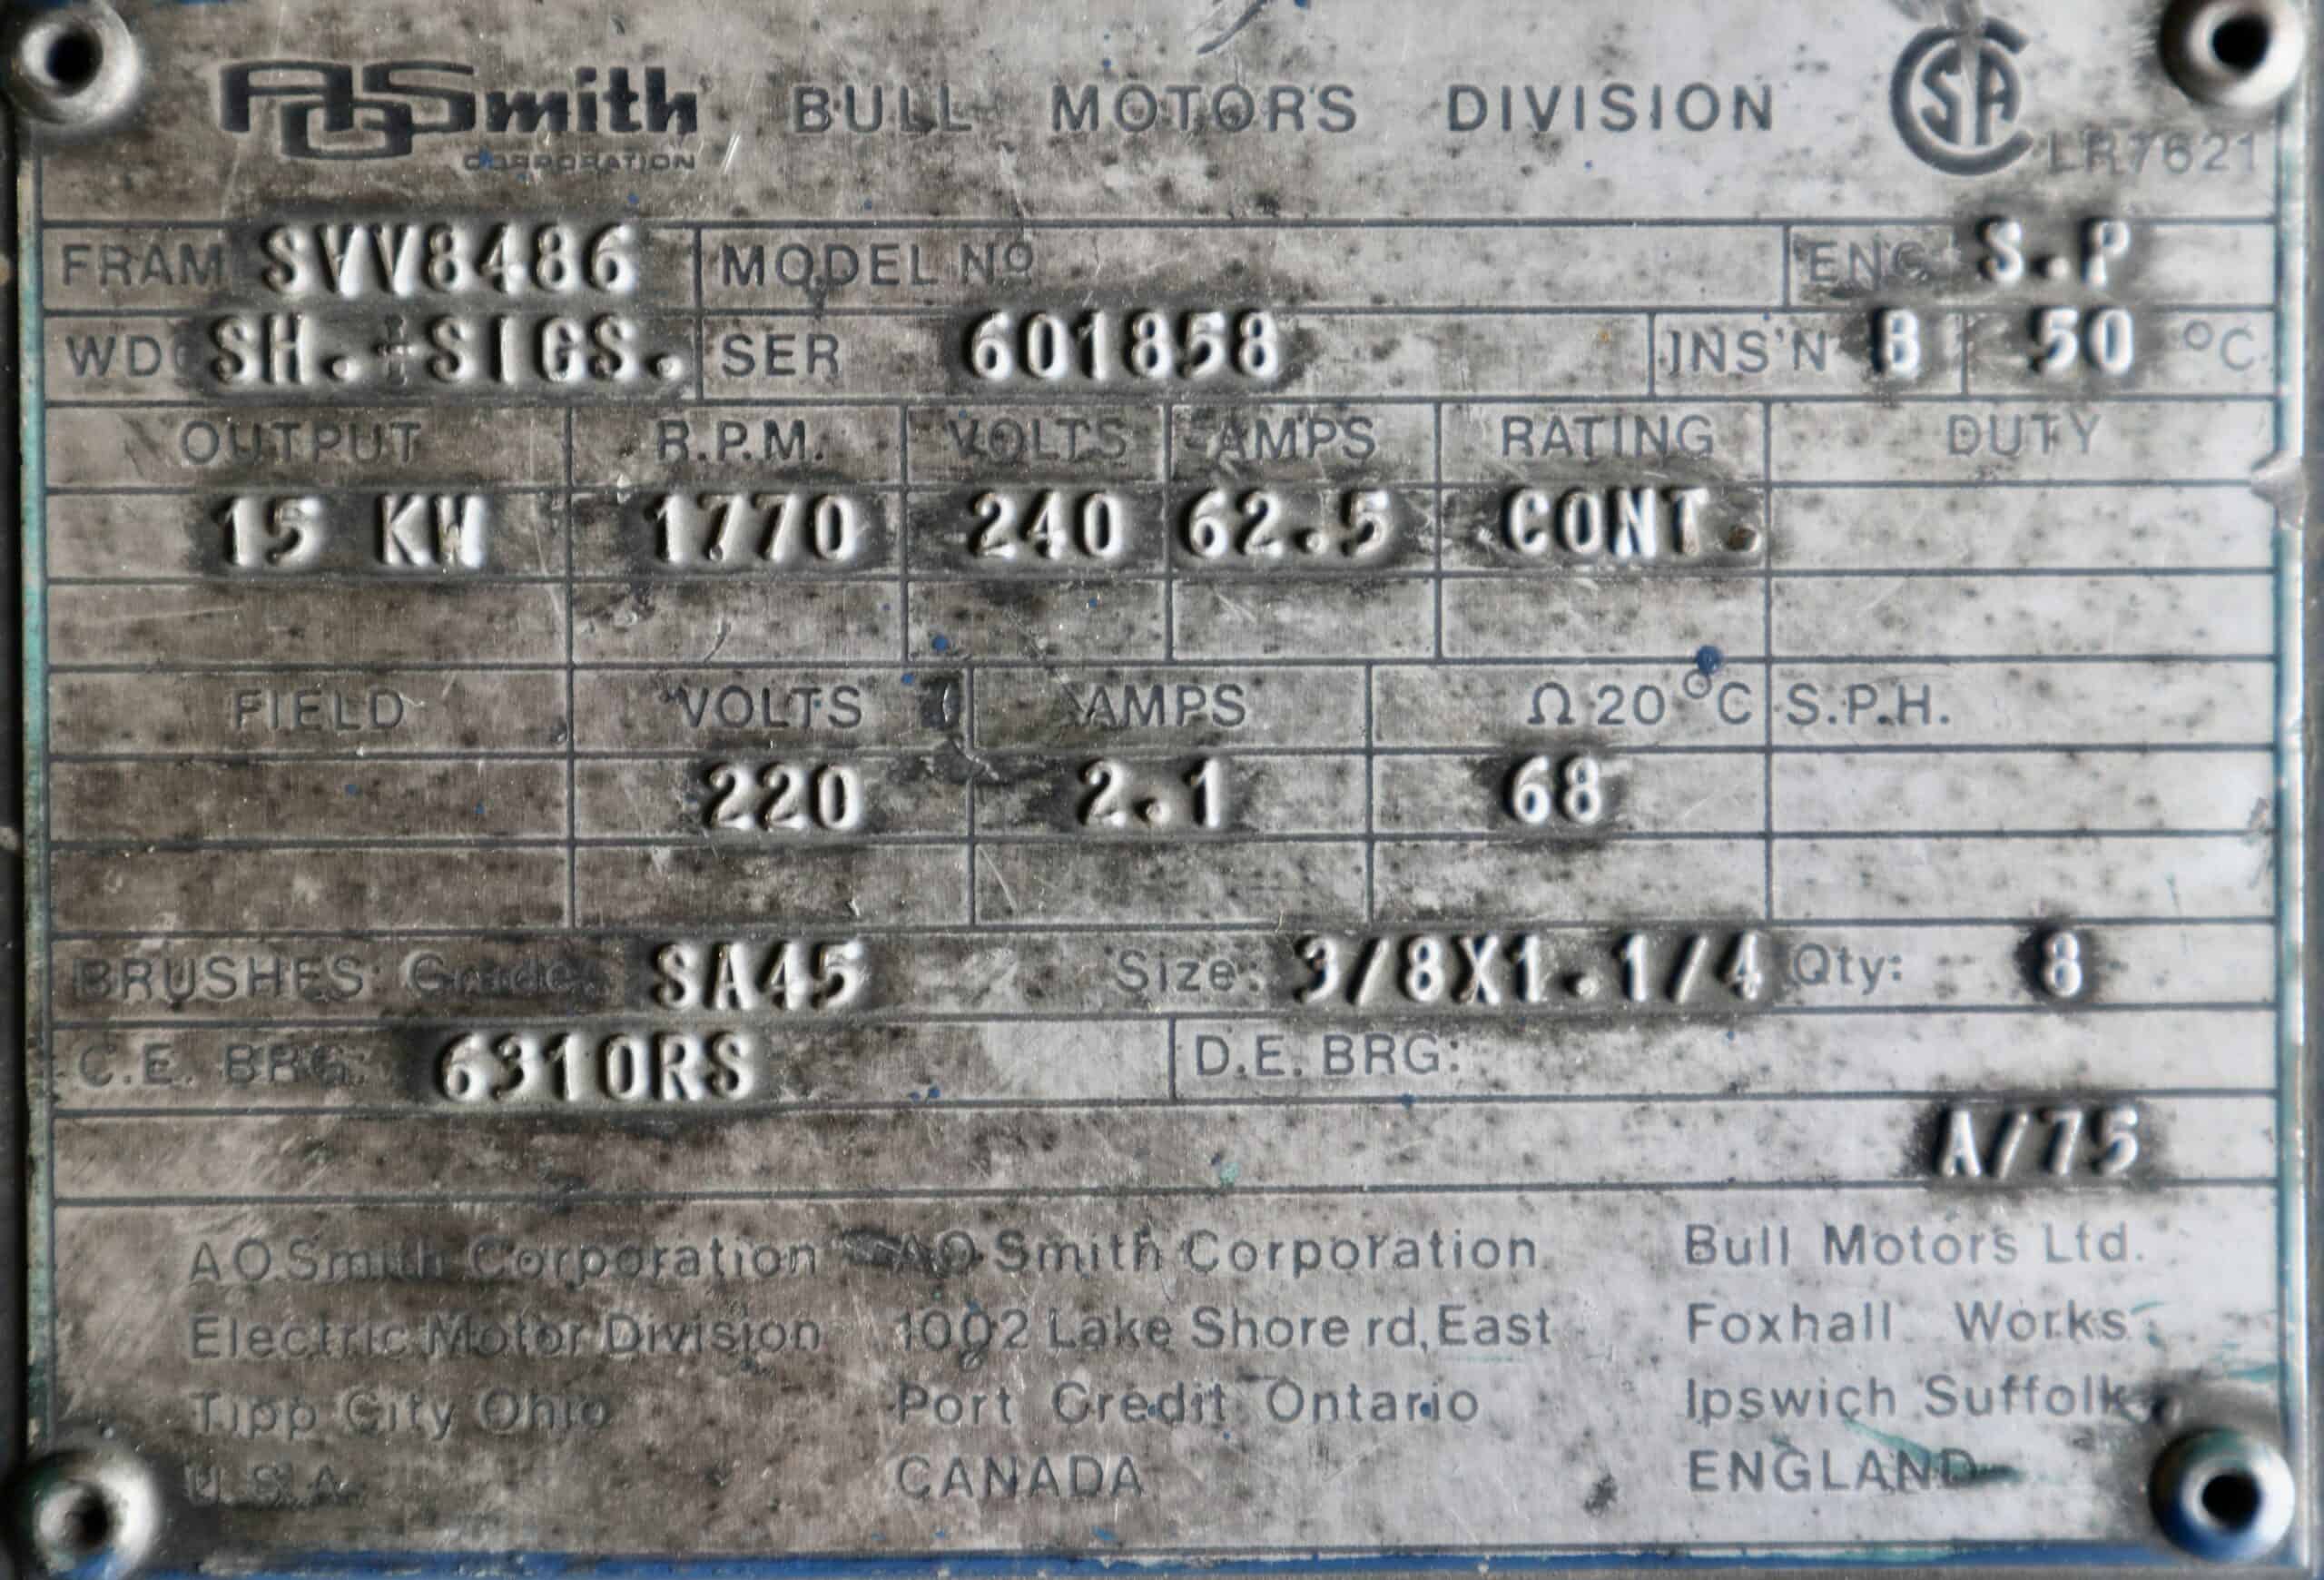 AOSmith CORPORATION BULL MOTORS DIVISION CSA LR7621
FRAM SVV8486 MODEL Nº ENC S.P
WDG SH.+SIGS. SER 601858 INS'N B 50 °C
OUTPUT R.P.M. VOLTS AMPS RATING DUTY
15 KW 1770 240 62.5 CONT.
FIELD VOLTS AMPS Ω 20 °C S.P.H.
220 2.1 68
BRUSHES: Grade: SA45 Size: 3/8X1.1/4 Qty: 8
C.E. BRG: 6310RS D.E. BRG:
A/75
AOSmith Corporation AOSmith Corporation Bull Motors Ltd.
Electric Motor Division 1002 Lake Shore rd, East Foxhall Works
Tipp City Ohio Port Credit Ontario Ipswich Suffolk
U.S.A. CANADA ENGLAND